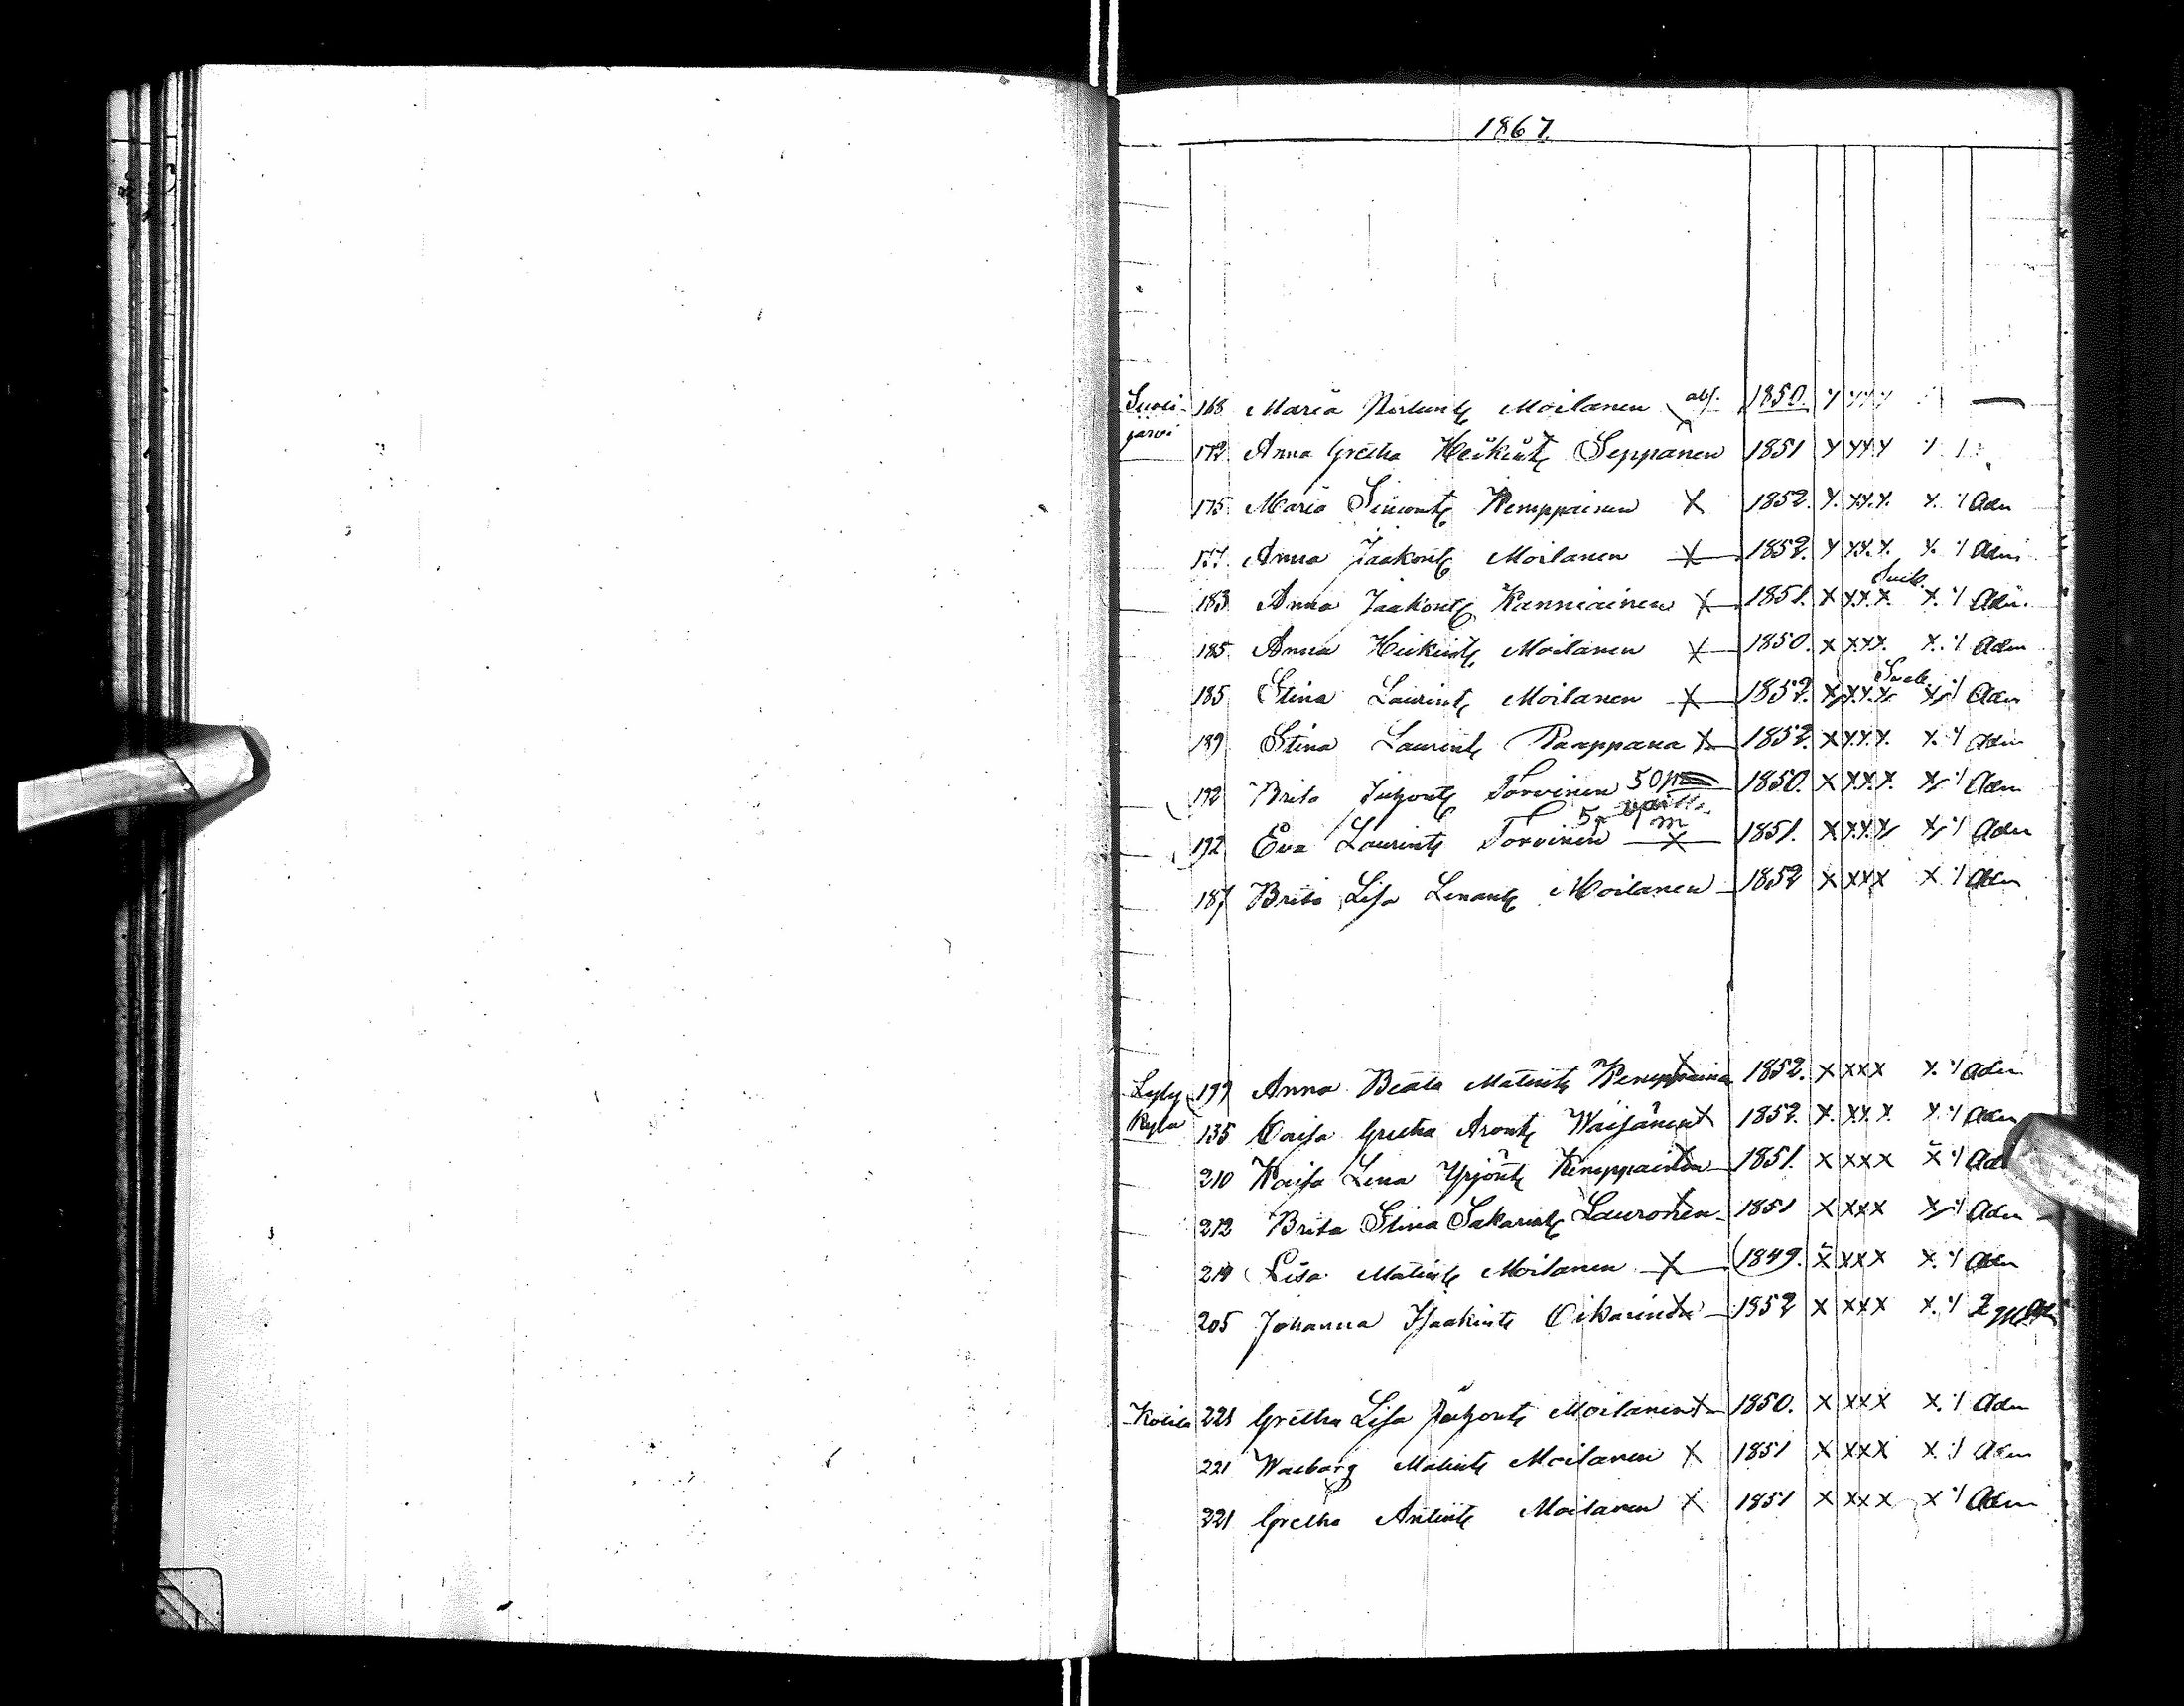 1867.
Suoli- 168 Maria Moilanen abs. 1850. x x x x —
järvi
172 Anna Gretha Heikint. Seppänen 1851 x x x x x /
175 Maria Simont. Kemppainen X 1852. x. x x. x. x. / Adm
177. Anna Jaakont. Moilanen X 1852. x x x. x. x. / Adm
183 Anna Jaakont. Kanniainen X 1851. x x x x x. / Adm.
185 Anna Heikint. Moilanen X 1850. x x x x. x. / Adm
185 Stina Laurint. Moilanen X 1852. x x x x x / Adm
189 Stina Laurint. Paappana X 1852. x x x x. x. / Adm
192 Brita Juhont. Torvinen 50 1850. x x x x. x / Adm
192 Eva Laurint. Torvinen X 1851. x x x x x / Adm
187 Brita Lisa Moilanen 1852 x x x x x / Adm
Lyly 199 Anna Beata Matint. Kemppainen X 1852. x x x x x. / Adm
Kylä 135 Caisa Gretha Aront. Waisänen X 1852. x. x x. x x. / Adm
210 Kaisa Lena Yrjönt. Kemppainen X 1851. x x x x x / Ad
212 Brita Stina Sakariat. Lauronen X 1851 x x x x x / Adm
214 Lisa Matint. Moilanen X (1849. x x x x x. / Adm
205 Johanna Isaakint. Oikarinen X 1852 x x x x x. / 2
Koiila 221 Gretha Lisa Juhont. Moilanen X 1850. x x x x x. / Adm
221 Walborg Matint. Moilanen X 1851 x x x x x. / Adm
221 Gretha Antint. Moilanen X 1851 x x x x x / Adm